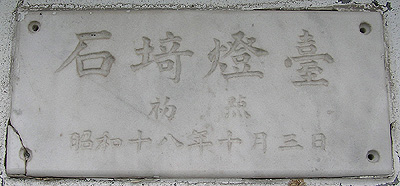 石埼燈臺
初點
昭和十八年十月三日